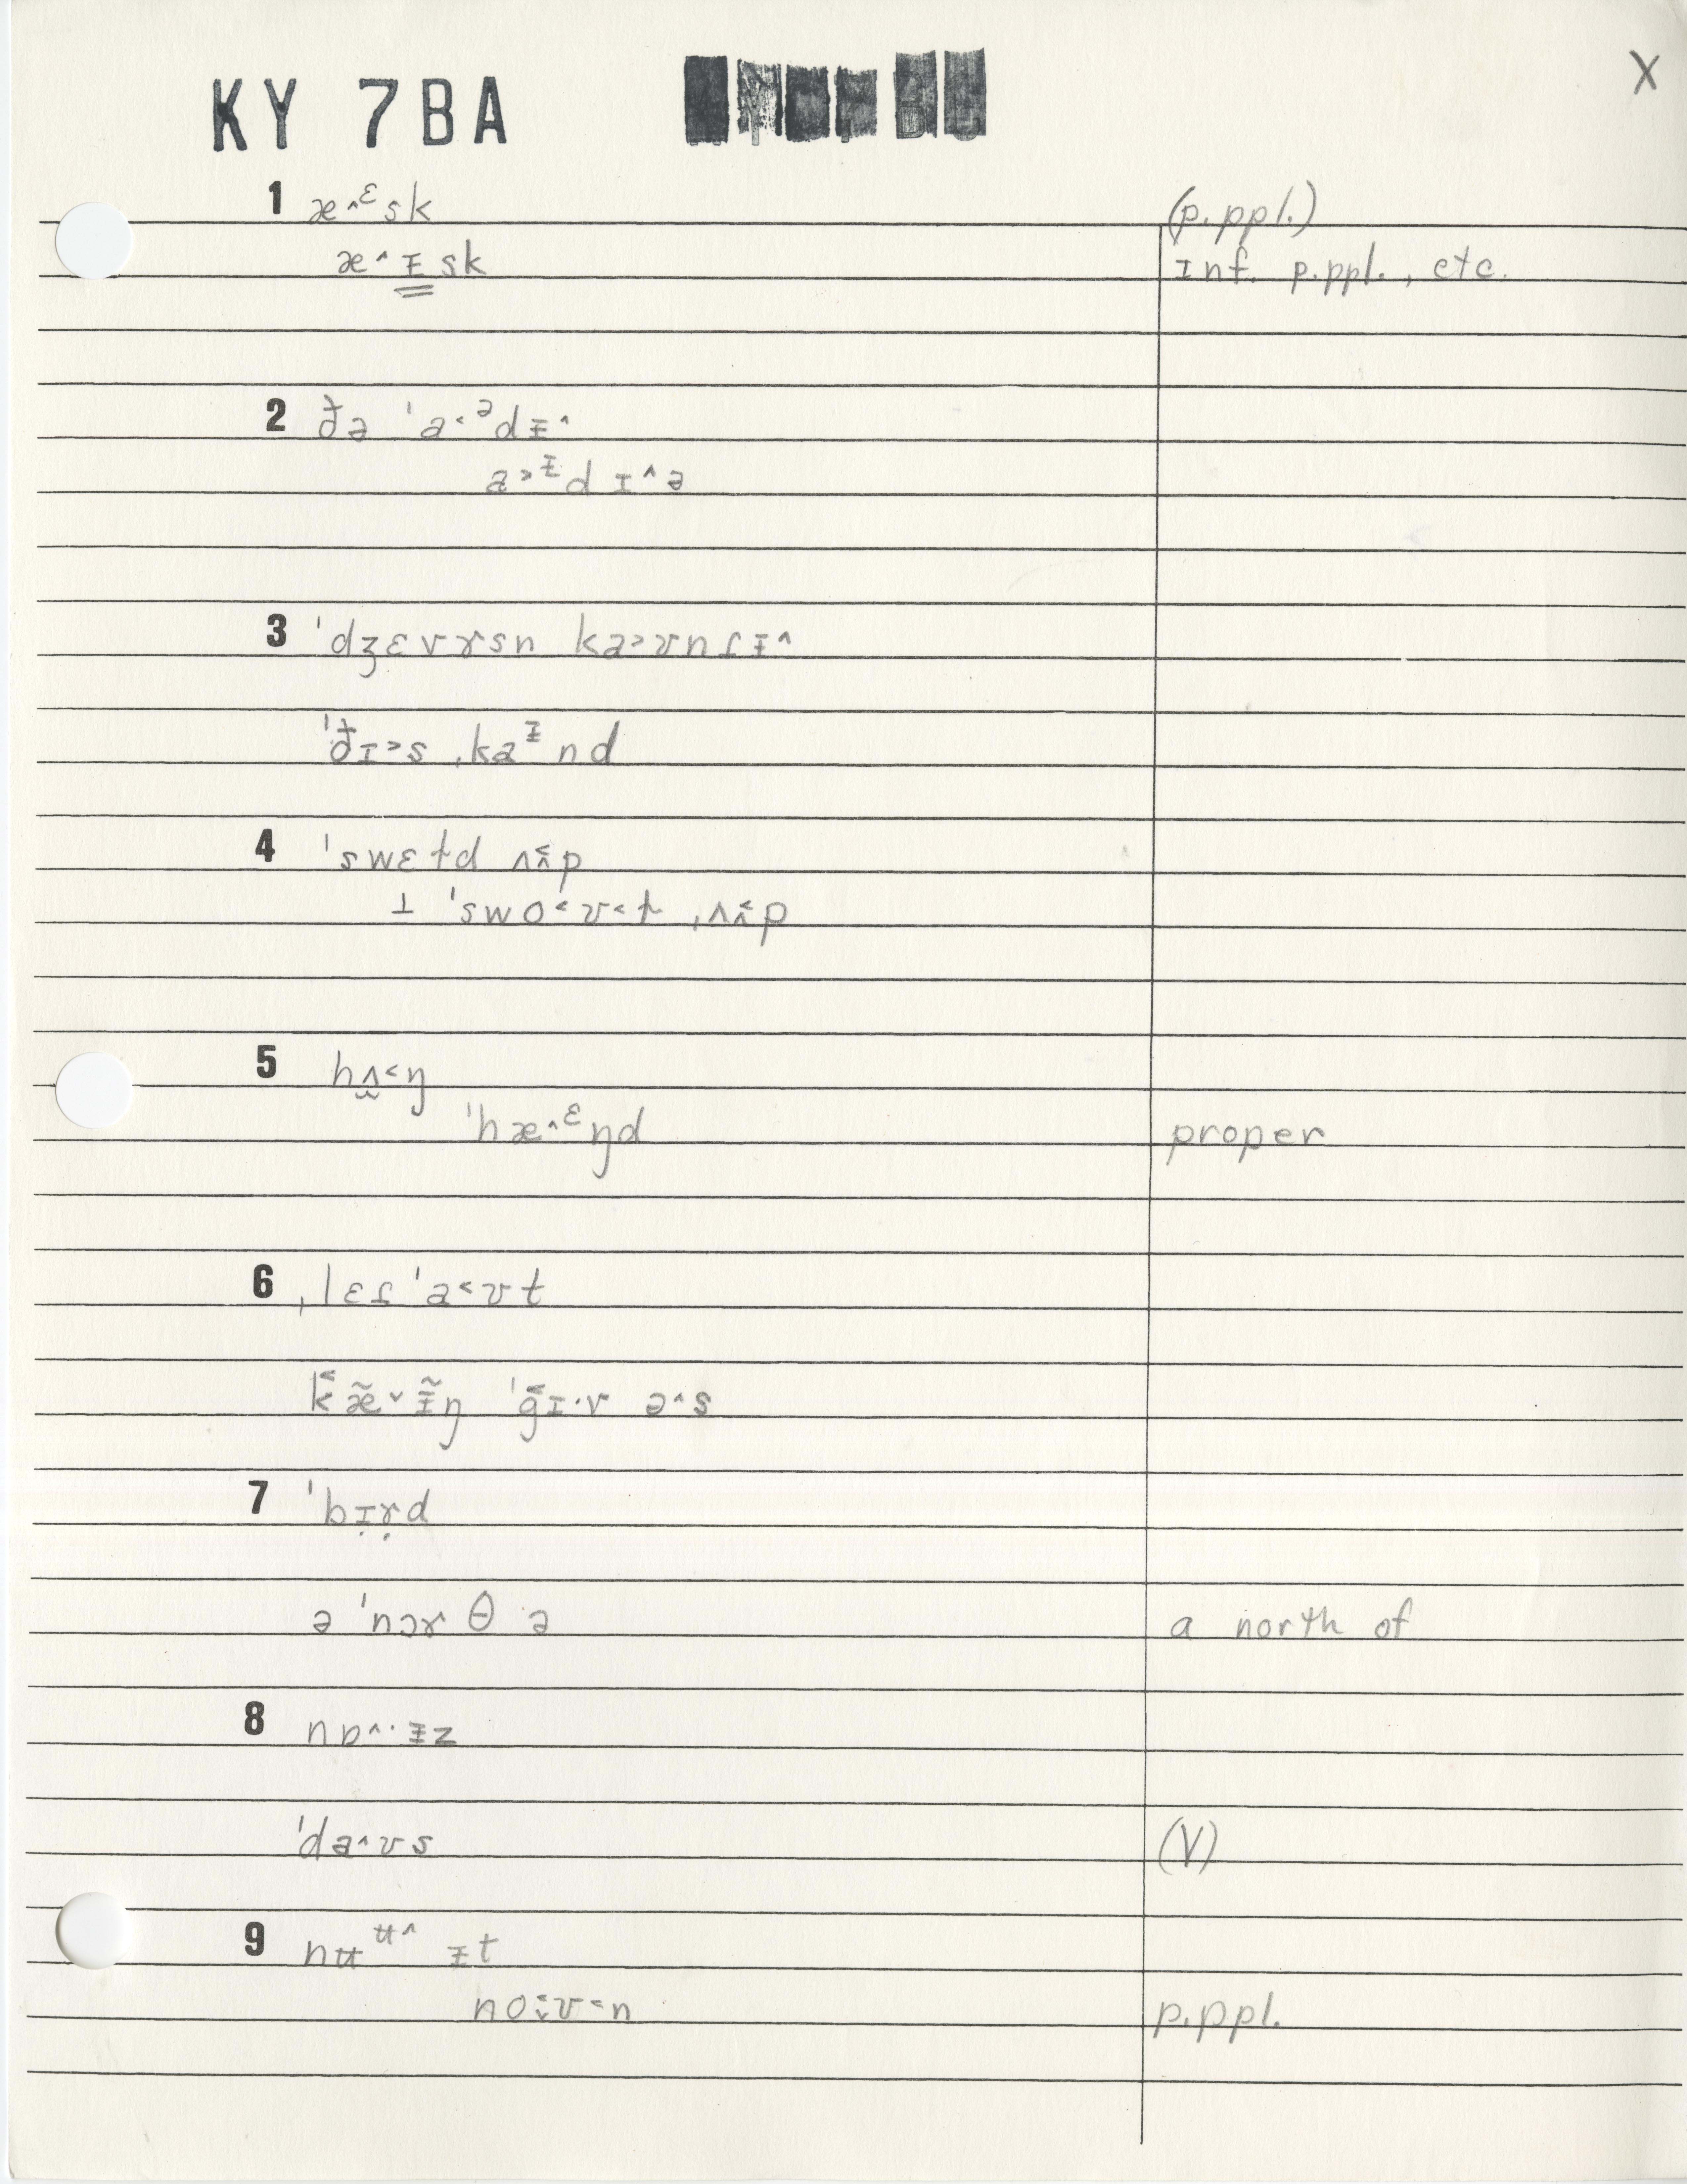 KY 7BA X
1 æ˄ᵋsk (p.ppl.)
æ˄ᵻsk Inf. p.ppl., etc.
2 ðə ˈa˂ᵊdᵻ˄
a˃ᵻdɪ˄ə
3 ˈdʒɛvɤsn ka˃ʊnɾᵻ˄
ˈðɪ˃s ˌkaᵻnd
4 ˈswɛtd ʌʌ̯˂p
⊥ ˈswo˂ʊ˂t ˌʌʌ̯˂p
5 hʌ̯˂ŋ
ˈhæ˄ᵋŋd proper
6 ˌlɛɾ ˈa˂ʊt
k˂æ̃˅ᵻ̃ŋ ˈg˂ɪ·v ə˄s
7 ˈbɪ̣ɤ̣d
ə ˈnɔɤ θ ə a north of
8 nɒ˄·ᵻz
ˈda˄ʊs (V)
9 nʉᶶ˄ ᵻt
no˂˅ʊ˂n p.ppl.